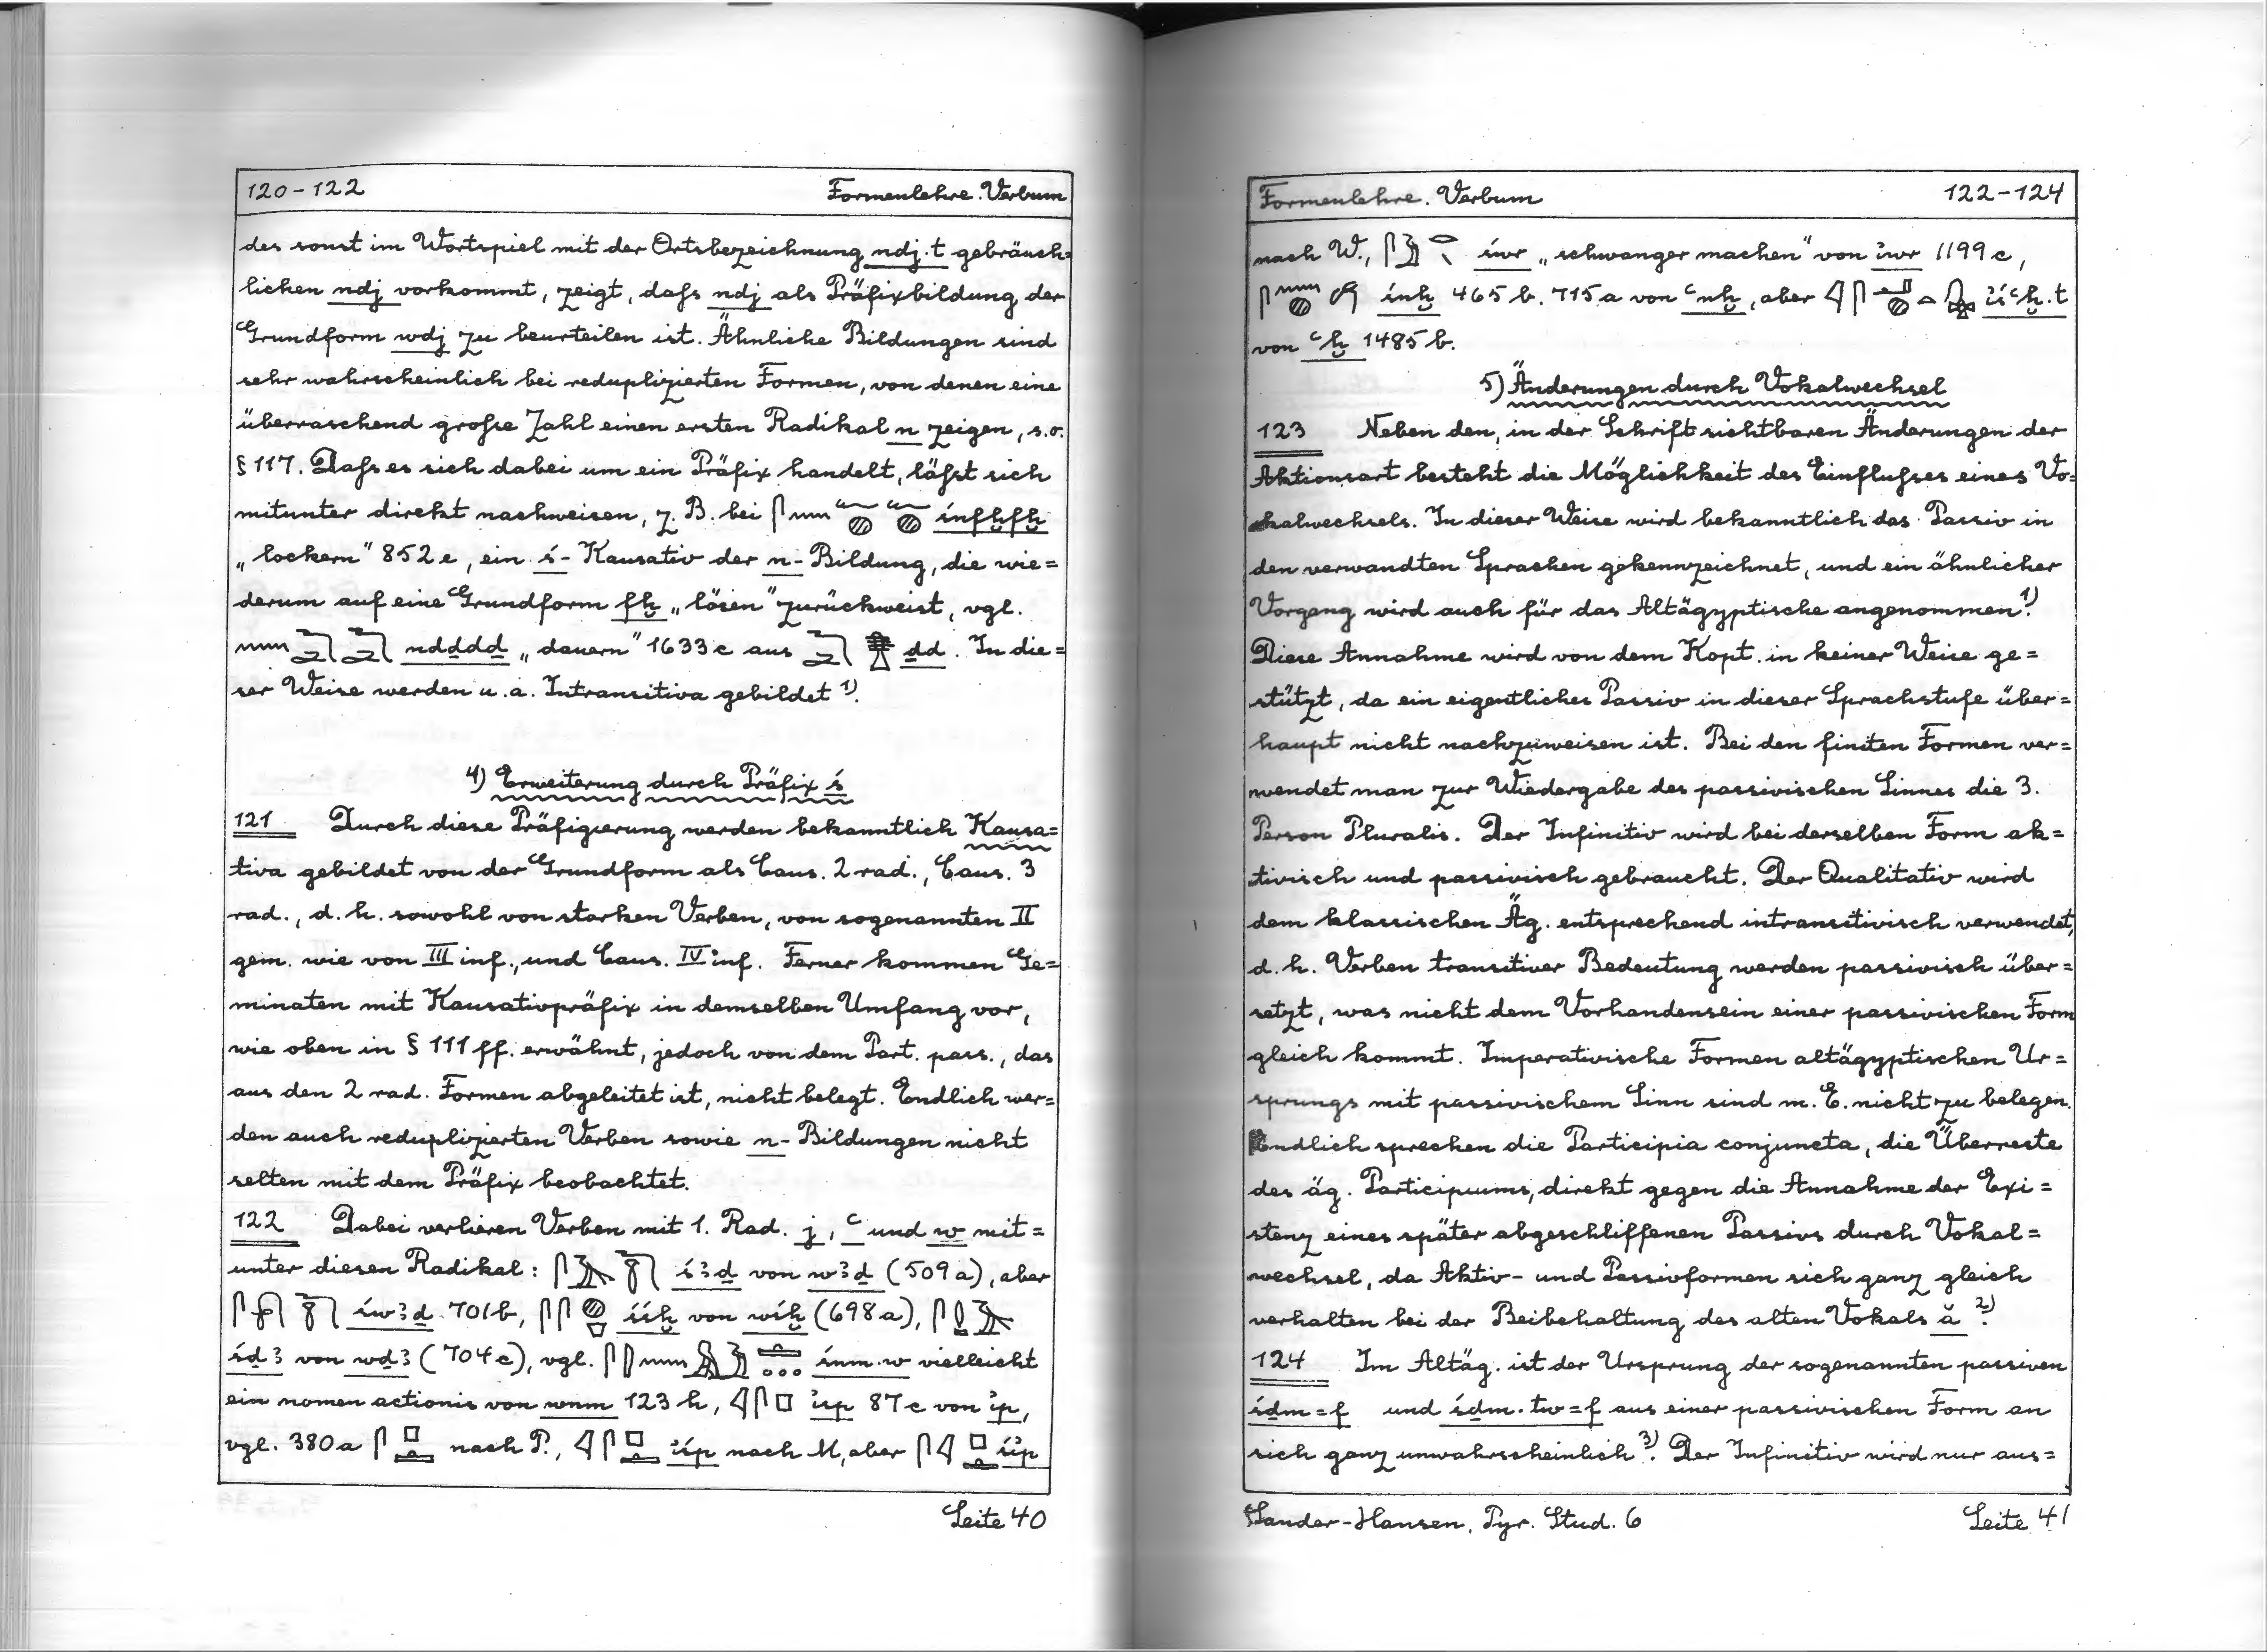 120-122 Formenlehre. Verbum
des sonst im Wortspiel mit der Ortsbezeichnung ndj.t gebräuch=
lichen ndj vorkommt, zeigt, daſs ndj als Präfixbildung der
Grundform wdj zu beurteilen ist. Ähnliche Bildungen sind
sehr wahrscheinlich bei reduplizierten Formen, von denen eine
überraschend groſse Zahl einen ersten Radikal n zeigen, s.o.
§ 117. Daſs es sich dabei um ein Präfix handelt, läſst sich
mitunter direkt nachweisen, z. B. bei śnfḫfḫ
„lockern" 852e, ein ś- Kausativ der n- Bildung, die wie=
derum auf eine Grundform fḫ „lösen" zurückweist, vgl.
nḏdḏd „dauern" 1633c aus ḏd. In die=
ser Weise werden u. a. Intransitiva gebildet 1).
4) Erweiterung durch Präfix ś
121 Durch diese Präfigierung werden bekanntlich Kausa=
tiva gebildet von der Grundform als Caus. 2 rad., Caus. 3
rad., d. h. sowohl von starken Verben, von sogenannten II
gem. wie von III inf., und Caus. IV inf. Ferner kommen Ge=
minaten mit Kausativpräfix in demselben Umfang vor,
wie oben in § 111 ff. erwähnt, jedoch von dem Part. pass., das
aus den 2 rad. Formen abgeleitet ist, nicht belegt. Endlich wer=
den auch reduplizierten Verben sowie n- Bildungen nicht
selten mit dem Präfix beobachtet.
122 Dabei verlieren Verben mit 1. Rad. j, ꜥ und w mit=
unter diesen Radikal: śꜣḏ von wꜣḏ (509a), aber
św̓ꜣḏ 701b, śśḫ von wśḫ (698a),
śḏꜣ von wḏꜣ (704c), vgl. śnm.w vielleicht
ein nomen actionis von wnm 123h, ı͗śp 87c von ı͗p,
vgl. 380a nach P., ı͗śp nach M, aber śı͗p
Seite 40
Formenlehre. Verbum 122-124
nach W., śwr „schwanger machen" von ı͗wr 1199c,
śnḫ 465b. 715a von ꜥnḫ, aber ı͗śꜥḫ.t
von ꜥḫ 1485b.
5) Änderungen durch Vokalwechsel
123 Neben den, in der Schrift sichtbaren Änderungen der
Aktionsart besteht die Möglichkeit des Einfluſses eines Vo=
kalwechsels. In dieser Weise wird bekanntlich das Passiv in
den verwandten Sprachen gekennzeichnet, und ein ähnlicher
Vorgang wird auch für das Altägyptische angenommen 1).
Diese Annahme wird von dem Kopt. in keiner Weise ge=
stützt, da ein eigentliches Passiv in dieser Sprachstufe über=
haupt nicht nachzuweisen ist. Bei den finiten Formen ver=
wendet man zur Wiedergabe des passivischen Sinnes die 3.
Person Pluralis. Der Infinitiv wird bei derselben Form ak=
tivisch und passivisch gebraucht. Der Qualitativ wird
dem klassischen Äg. entsprechend intransitivisch verwendet,
d. h. Verben transitiver Bedeutung werden passivisch über=
setzt, was nicht dem Vorhandensein einer passivischen Form
gleich kommt. Imperativische Formen altägyptischen Ur=
sprungs mit passivischem Sinn sind m. E. nicht zu belegen.
Endlich sprechen die Participia conjuncta, die Überreste
des äg. Participiums, direkt gegen die Annahme der Exi=
stenz eines später abgeschliffenen Passivs durch Vokal=
wechsel, da Aktiv- und Passivformen sich ganz gleich
verhalten bei der Beibehaltung des alten Vokals ă 2).
124 Im Altäg. ist der Ursprung der sogenannten passiven
śḏm=f und śḏm.tw=f aus einer passivischen Form an
sich ganz unwahrscheinlich 3). Der Infinitiv wird nur aus=
Sander-Hansen, Pyr. Stud. 6 Seite 41